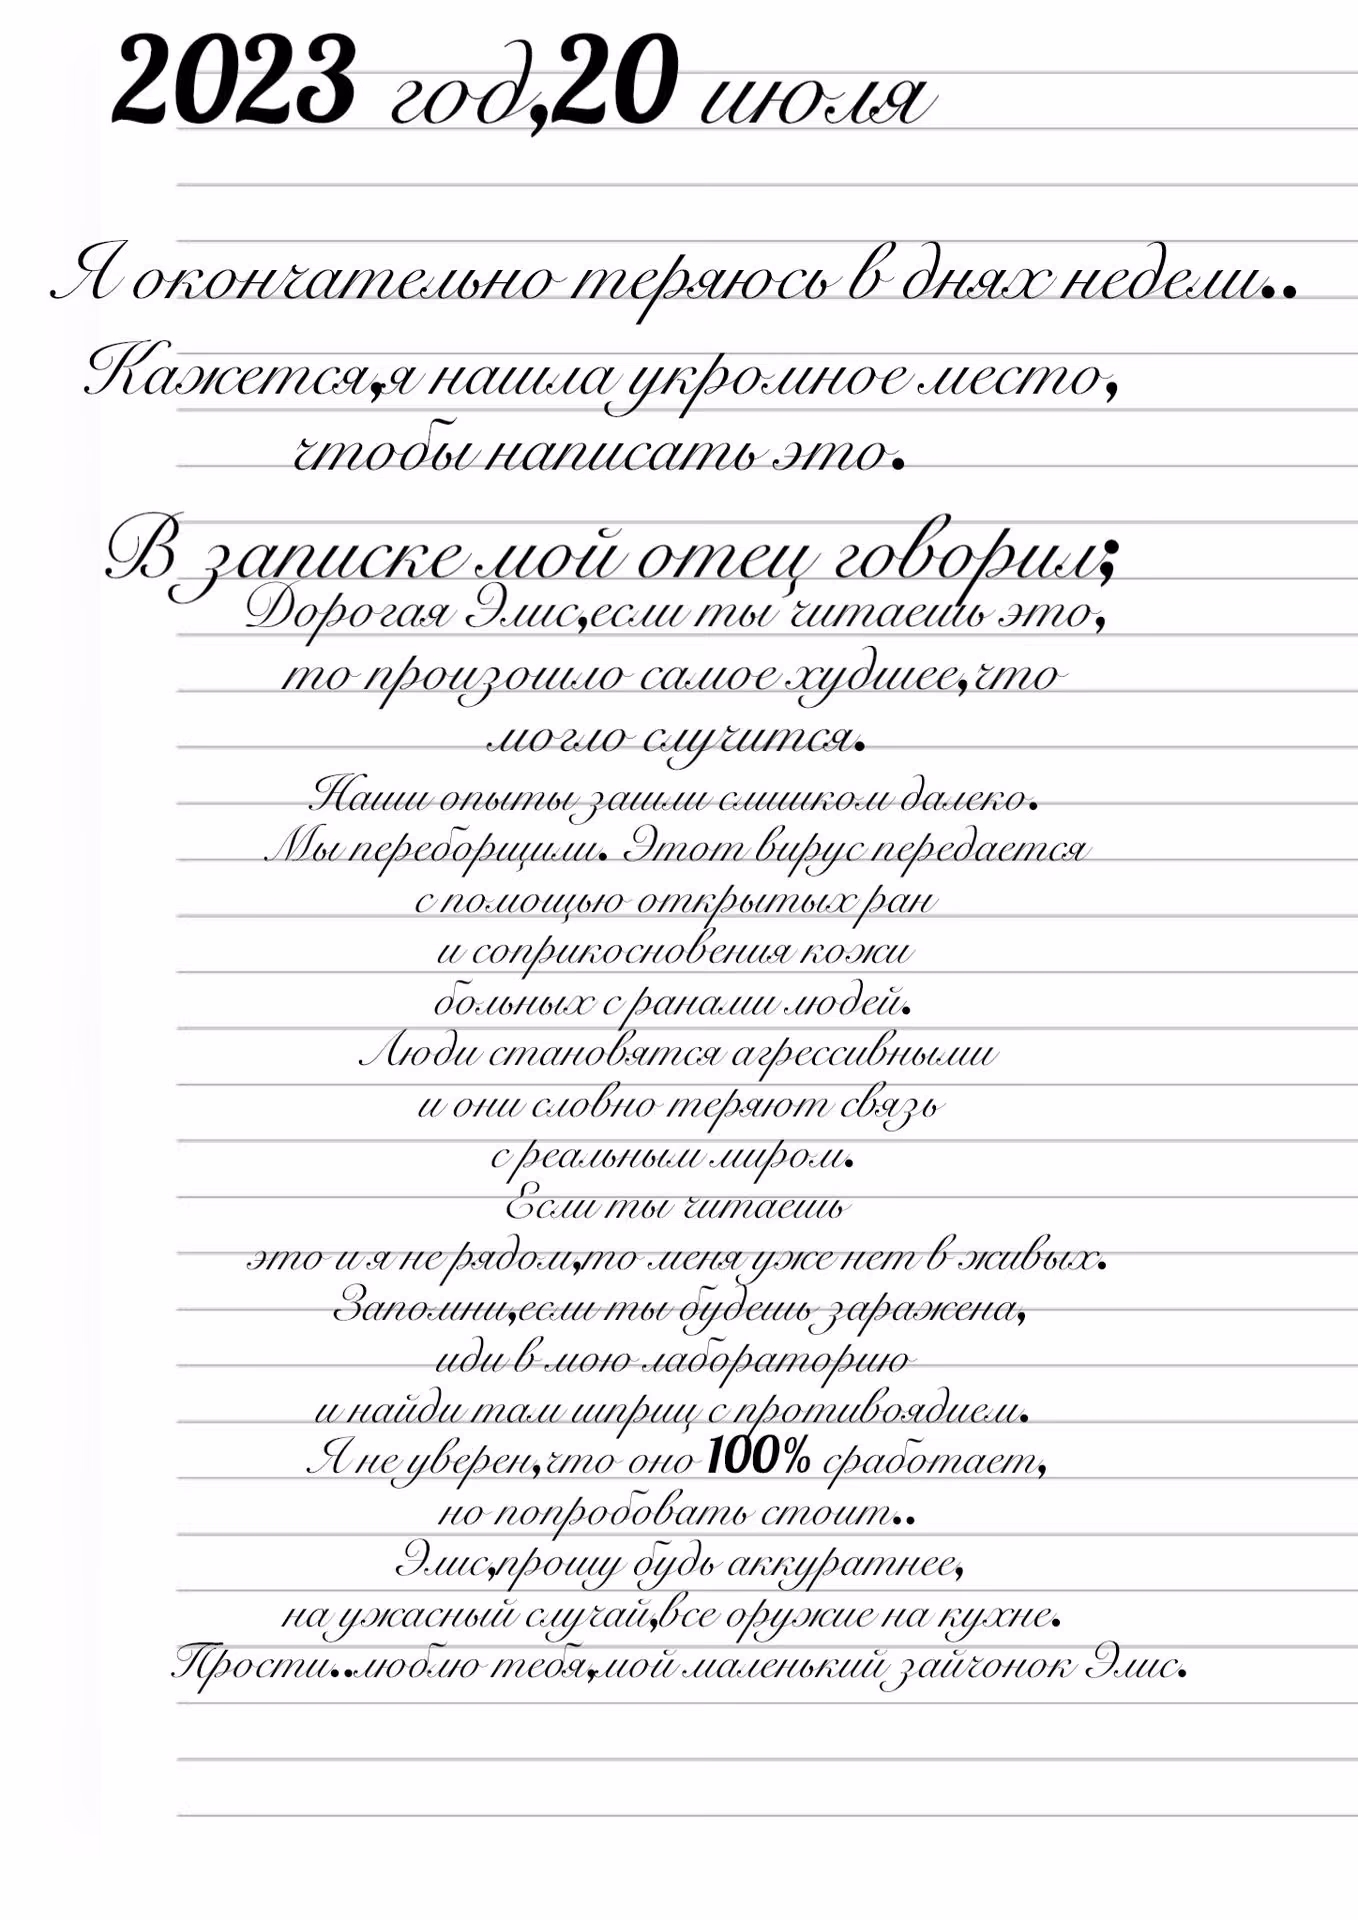 2023 год,20 июля
Я окончательно теряюсь в днях недели..
Кажется,я нашла укромное место,
чтобы написать это.
В записке мой отец говорил;
Дорогая Элис,если ты читаешь это,
то произошло самое худшее,что
могло случится.
Наши опыты зашли слишком далеко.
Мы переборщили. Этот вирус передается
с помощью открытых ран
и соприкосновения кожи
больных с ранами людей.
Люди становятся агрессивными
и они словно теряют связь
с реальным миром.
Если ты читаешь
это и я не рядом,то меня уже нет в живых.
Запомни,если ты будешь заражена,
иди в мою лабораторию
и найди там шприц с противоядием.
Я не уверен,что оно 100% сработает,
но попробовать стоит..
Элис,прошу будь аккуратнее,
на ужасный случай,все оружие на кухне.
Прости..люблю тебя,мой маленький зайчонок Элис.